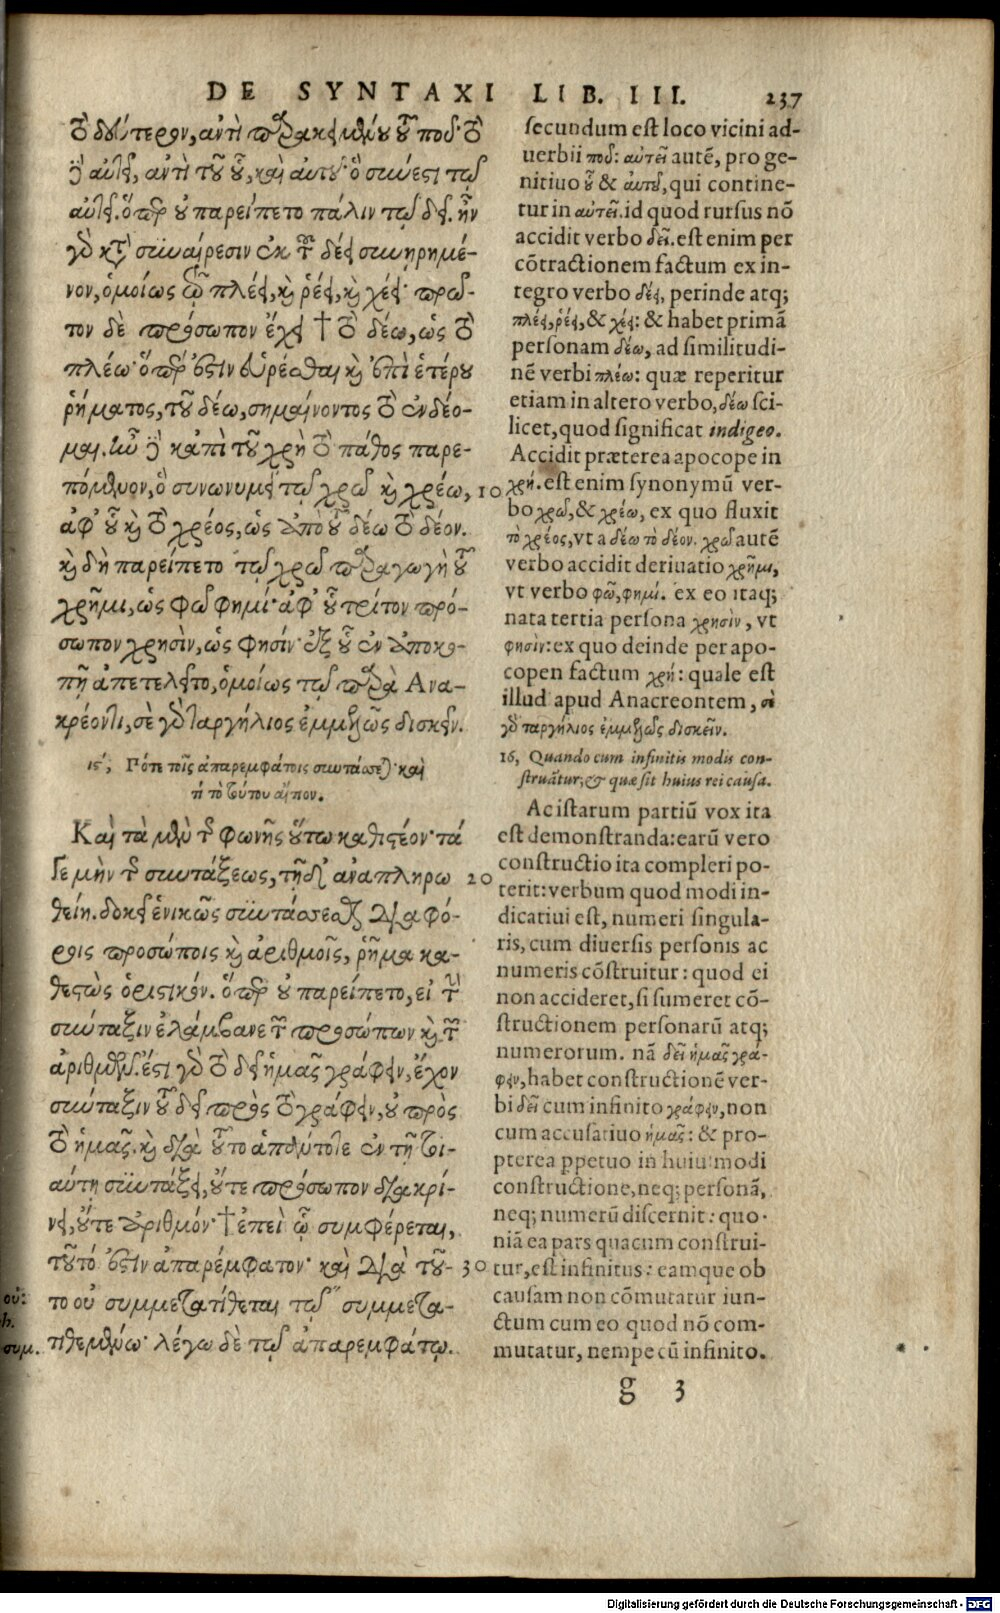 DE SYNTAXI LIB. III. 237
τὸ δεύτερον, ἀντὶ παρακειμένου τοῦ ποδ· τὸ
γὰρ αὐτεῖ, ἀντὶ τοῦ οὗ, καὶ αὐτοῦ· ὃ σύνεστι τῷ
αὐτεῖ. ὅπερ οὐ παρείπετο πάλιν τῷ δεῖ. ἦν
γὰρ κατὰ συναίρεσιν ἐκ τοῦ δέει συνῃρημέ-
νον, ὁμοίως τῷ πλέει, καὶ ῥέει, καὶ χέει· πρῶ-
τον δὲ πρόσωπον ἔχει † τὸ δέω, ὡς τὸ
πλέω· ὅπερ ἐστὶν εὑρέσθαι καὶ ἐπὶ ἑτέρου
ῥήματος, τοῦ δέω, σημαίνοντος τὸ ἐνδέο-
μαι. ἦν γὰρ κἀπὶ τοῦ χρὴ τὸ πάθος παρε-
πόμενον, ὃ συνωνυμεῖ τῷ χρῶ καὶ χρέω, 10
ἀφ' οὗ καὶ τὸ χρέος, ὡς ἀπὸ τοῦ δέω τὸ δέον.
καὶ δὴ παρείπετο τῷ χρῶ παραγωγὴ τοῦ
χρῆμι, ὡς φῶ φημί· ἀφ' οὗ τρίτον πρό-
σωπον χρησὶν, ὡς φησίν· ἐξ οὗ ἐν ἀποκο-
πῇ ἀπετελεῖτο, ὁμοίως τῷ παρὰ Ανα-
κρέοντι, σὲ γὰρ ταργήλιος ἐμμελῶς δισκεῖν.
ις, Πότε τοῖς ἀπαρεμφάτοις συντάσσεται· καὶ
τί τὸ τούτου αἴτιον.
Καὶ τὰ μὲν τῆς φωνῆς οὕτω καθιστέον· τά
γε μὴν τῆς συντάξεως, τῇδε ἀναπληρω 20
θείη. δοκεῖ ἑνικῶς συντάσσεσθαι διαφό-
ροις προσώποις καὶ ἀριθμοῖς, ῥῆμα κα-
θεστὼς ὁριστικόν. ὅπερ οὐ παρείπετο, εἰ τὴν
σύνταξιν ἐλάμβανε τῶν προσώπων καὶ τῶν
ἀριθμῶν. ἔστι γὰρ τὸ δεῖ ἡμᾶς γράφειν, ἔχον
σύνταξιν τοῦ δεῖ πρὸς τὸ γράφειν, οὐ πρὸς
τὸ ἡμᾶς. καὶ διὰ τοῦτο ἁπάντοτε ἐν τῇ τοι-
αύτῃ συντάξει, οὔτε πρόσωπον διακρί-
νει, οὔτε ἀριθμόν· † ἐπεὶ ᾧ συμφέρεται,
τοῦτό ἐστιν ἀπαρέμφατον· καὶ διὰ τοῦ- 30
το οὐ συμμετατίθεται τῷ " συμμετα-
τιθεμένῳ· λέγω δὲ τῷ ἀπαρεμφάτῳ.
οὐ:
h.
συμ.
secundum est loco vicini ad-
uerbii ποδ: αὐτεῖ autē, pro ge-
nitiuo οὗ & αὐτοῦ, qui contine-
tur in αὐτεῖ. id quod rursus nō
accidit verbo δεῖ. est enim per
cōtractionem factum ex in-
tegro verbo δέει, perinde atq;
πλέει, ῥέει, & χέει: & habet primā
personam δέω, ad similitudi-
nē verbi πλέω: quæ reperitur
etiam in altero verbo, δέω sci-
licet, quod significat indigeo.
Accidit præterea apocope in
χρή. est enim synonymū ver-
bo χρῶ, & χρέω, ex quo fluxit
τὸ χρέος, vt a δέω τὸ δέον. χρῶ autē
verbo accidit deriuatio χρῆμι,
vt verbo φῶ, φημί. ex eo itaq;
nata tertia persona χρησὶν, vt
φησὶν: ex quo deinde per apo-
copen factum χρή: quale est
illud apud Anacreontem, σὲ
γὰρ ταργήλιος ἐμμελῶς δισκεῖν.
16, Quando cum infinitis modis con-
struātur; & quæ sit huius rei causa.
Ac istarum partiū vox ita
est demonstranda: earū vero
constructio ita compleri po-
terit: verbum quod modi in-
dicatiui est, numeri singula-
ris, cum diuersis personis ac
numeris cōstruitur: quod ei
non accideret, si sumeret cō-
structionem personarū atq;
numerorum. nā δεῖ ἡμᾶς γρά-
φειν, habet constructionē ver-
bi δεῖ cum infinito γράφειν, non
cum accusatiuo ἡμᾶς: & pro-
pterea ppetuo in huiusmodi
constructione, neq; personā,
neq; numerū discernit: quo-
niā ea pars quacum construi-
tur, est infinitus: eamque ob
causam non cōmutatur iun-
ctum cum eo quod nō com-
mutatur, nempe cū infinito.
g 3
Digitalisierung gefördert durch die Deutsche Forschungsgemeinschaft - DFG